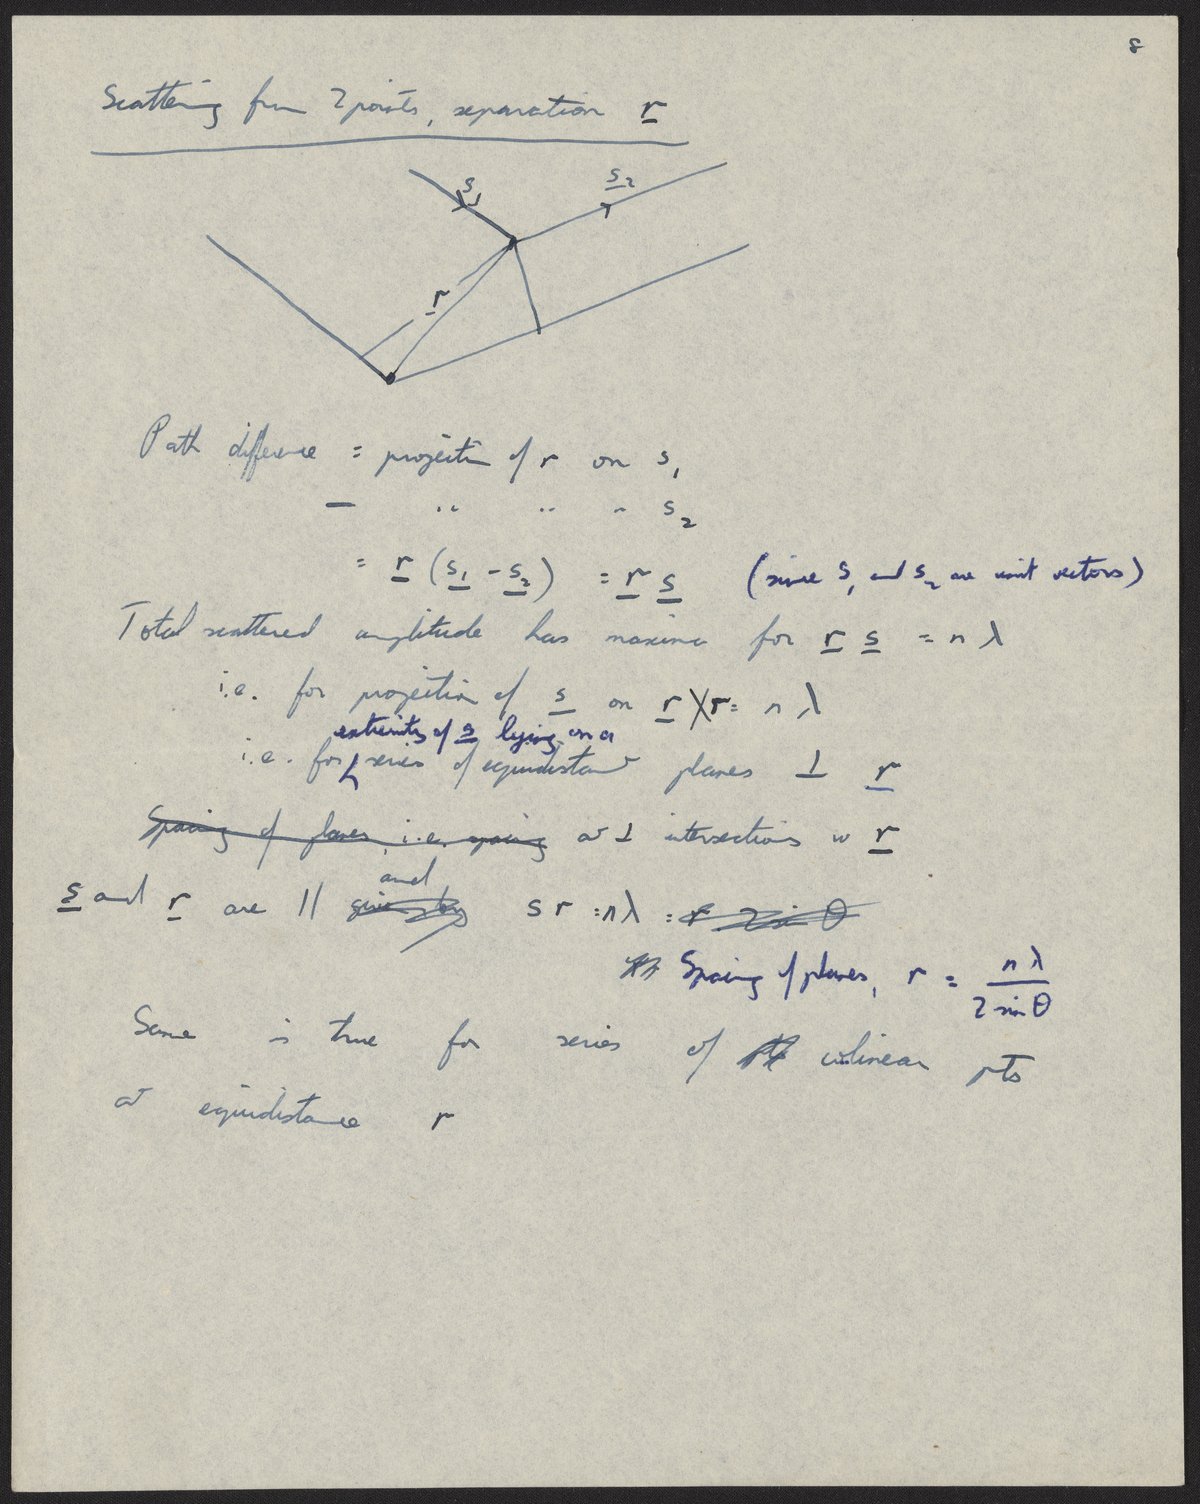 8
Scattering from 2 points, separation r
s1
s2
r
Path difference = projection of r on s1
— " " " s2
= r (s1 - s2) = r s (since s1 and s2 are unit vectors)
Total scattered amplitude has maxima for r s = n λ
i.e. for projection of s on r X r = n λ
extremity of s lying on a
i.e. for series of equidistant planes ⊥ r
Spacing of planes, i.e. spacing at ⊥ intersections w r
and
s and r are || given by s r = nλ = r 2 sin θ
Spacing of planes, r = nλ / 2 sin θ
Same is true for series of colinear pts
at equidistance r